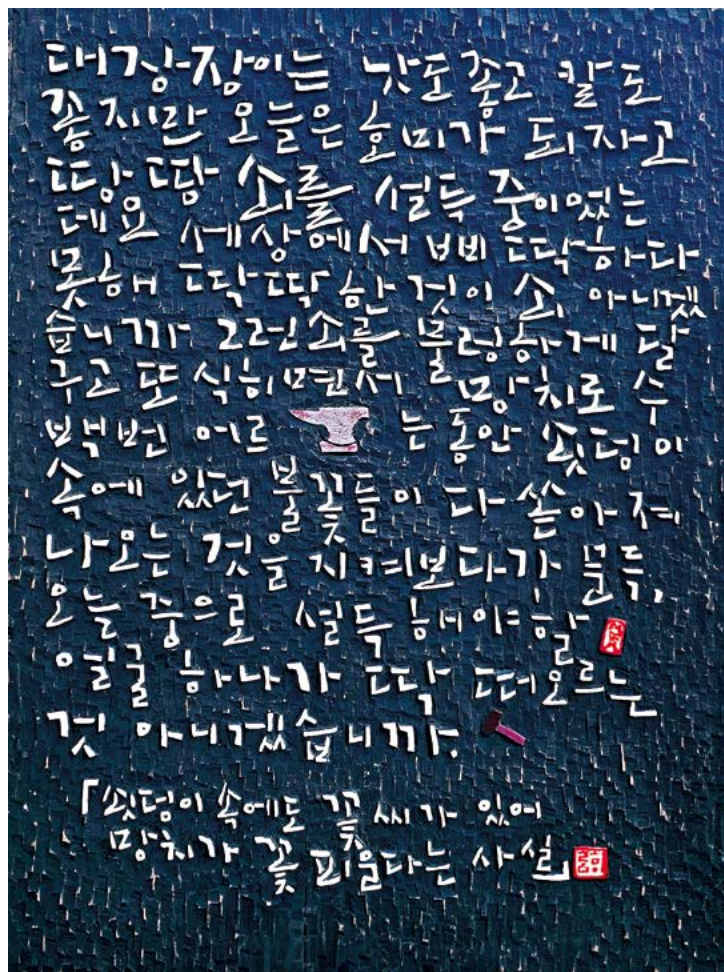 대장장이는 낫도 좋고 칼도
좋지만 오늘은 호미가 되자고
땅땅 쇠를 설득 중이었는
데요 세상에서 삐딱하다
못해 딱딱한 것이 쇠 아니겠
습니까 그런 쇠를 물렁하게 달
구고 또 식히면서 망치로 수
백번 어르는 동안 쇳덩이
속에 있던 불꽃들이 다 쏟아져
나오는 것을 지켜보다가 문득,
오늘 중으로 설득해야 할
얼굴 하나가 딱 떠오르는
것 아니겠습니까.
「쇳덩이 속에도 꽃씨가 있어
망치가 꽃 피운다는 사실」